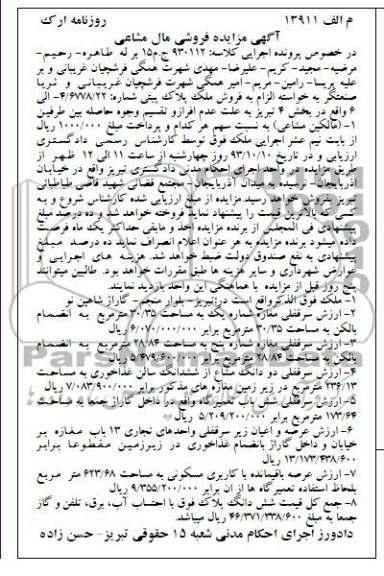 م الف ۱۳۹۱۱ روزنامه ارک
آگهی مزایده فروشی مال مشاعی
در خصوص پرونده اجرایی کلاسه: ۹۳۰۱۱۲ ج.م۱۵ بر له طاهره- رحیم-
مرضیه- مجید- کریم- علیرضا- مهدی شهرت همگی فرشچیان غریبانی و بر
علیه پریسا- رامین- مریم- امیر همگی شهرت فرشچیان غریبانی و ثریا
صنعتگر به خواسته الزام به فروش ملک پلاک پیتی شماره: ۴/۶۷۷۸/۲۲- الی
۶ واقع در بخش ۴ تبریز به علت عدم افرازو تقسیم وجوه حاصله بین طرفین
۱- (مالکین مشاعی) به نسبت سهم هر کدام و پرداخت مبلغ ۱۰۰۰/۰۰۰ ریال
از بابت نیم عشر اجرایی ملک فوق توسط کارشناس رسمی دادگستری
ارزیابی و در تاریخ ۹۳/۱۰/۱۰ روز چهارشنبه از ساعت ۱۱ الی ۱۲ ظهر از
طریق مزایده و در واحد اجرای احکام مدنی دادگستری تبریز واقع در خیابان
آذربایجان- نرسیده به میدان آذربایجان- مجتمع قضائی شهید قاضی طباطبائی
تبریز بفروش خواهد رسید.مزایده از مبلغ ارزیابی شده کارشناس شروع و به
کسی که بالاترین قیمت را پیشنهاد نماید فروخته خواهد شد و ده درصد مبلغ
پیشنهادی فی المجلس از برنده مزایده اخذ و مابقی حداکثر یک ماه فرصت
داده میشود برنده مزایده به هر عنوان اعلام انصراف نماید ده درصد مبلغ
پیشنهادی به نفع صندوق دولت ضبط خواهد شد. هزینه های اجرایی و
عوارض شهرداری و سایر هزینه ها طبق مقررات خواهد بود. طالبین میتوانند
پنج روز قبل از مزایده با هماهنگی این واحد بازدید نمایند.
۱- ملک فوق الذکرواقع است درتبریز- بلوار منجم- گاراژ شاهین نو
۲- ارزش سرقفلی مغازه شماره یک به مساحت ۳۰/۳۵ مترمربع به انضمام
بالکن به مساحت ۳۰/۳۵ مترمربع برابر ۶/۰۷۰/۰۰۰/۰۰۰ ریال
۳- ارزش سرقفلی مغازه شماره پنج به مساحت ۲۸/۸۴ مترمربع به انضمام
بالکن به مساحت ۲۸/۸۴ مترمربع برابر ۵/۴۷۹/۶۰۰/۰۰۰ ریال
۴- ارزش سرقفلی دو دانگ مشاع از ششدانگ سالن غذاخوری به مساحت
۲۳۶/۱۳ مترمربع در زیر زمین مغازه های مذکور برابر ۷/۰۸۳/۹۰۰/۰۰۰ ریال
۵- ارزش سرقفلی شش باب تعمیرگاه واقع در داخل گاراژ جمعا به مساحت
۱۷۳/۶۴ مترمربع برابر ۵/۲۰۹/۲۰۰/۰۰۰ ریال
۶- ارزش عرصه و اعیان زیر سرقفلی واحدهای تجاری ۱۳ باب مغازه بر
خیابان و داخل گاراژ بانضمام غذاخوری در زیرزمین مقطوعا برابر
۱۳/۱۷۳/۴۳۸/۶۰۰ ریال
۷- ارزش عرصه باقیمانده با کاربری مسکونی به مساحت ۶۲۳/۶۸ متر مربع
بلحاظ استفاده تعمیرگاه ها از ان برابر ۹/۳۵۵/۲۰۰/۰۰۰ ریال
۸- جمع کل قیمت شش دانگ پلاک فوق با احتساب آب، برق، تلفن و گاز
جمعا به مبلغ ۴۶/۳۷۱/۳۳۸/۶۰۰ ریال میباشد.
دادورز اجرای احکام مدنی شعبه ۱۵ حقوقی تبریز- حسن زاده